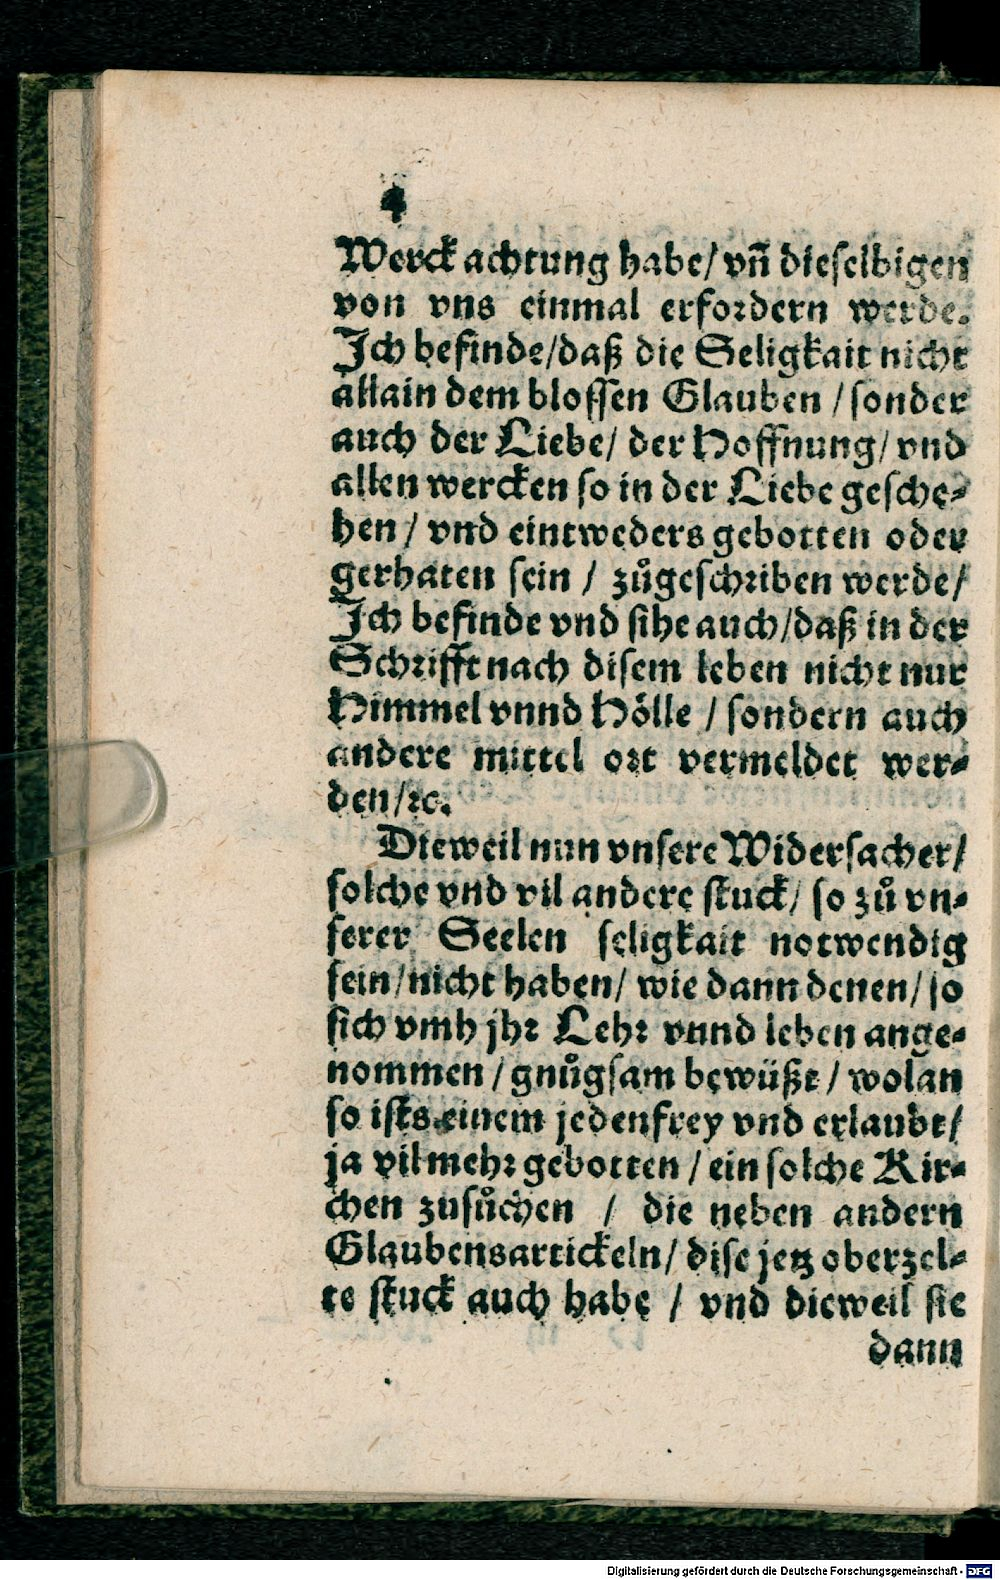 4
Werck achtung habe/ vñ dieselbigen
von vns einmal erfordern werde.
Ich befinde/daß die Seligkait nicht
allain dem blossen Glauben / sonder
auch der Liebe/ der Hoffnung/ vnd
allen wercken so in der Liebe gesche-
hen / vnd eintweders gebotten oder
gerhaten sein / zůgeschriben werde/
Ich befinde vnd sihe auch/daß in der
Schrifft nach disem leben nicht nur
Himmel vnnd Hölle / sondern auch
andere mittel ort vermeldet wer-
den/ꝛc.
Dieweil nun vnsere Widersacher/
solche vnd vil andere stuck/ so zů vn-
serer Seelen seligkait notwendig
sein/nicht haben/ wie dann denen/ so
sich vmb jhr Lehr vnnd leben ange-
nommen / gnůgsam bewüßt / wolan
so ists einem jeden frey vnd erlaubt/
ja vil mehr gebotten / ein solche Kir-
chen zusůchen / die neben andern
Glaubensartickeln/ dise jetz oberzel-
te stuck auch habe / vnd dieweil sie
dann
Digitalisierung gefördert durch die Deutsche Forschungsgemeinschaft - DFG